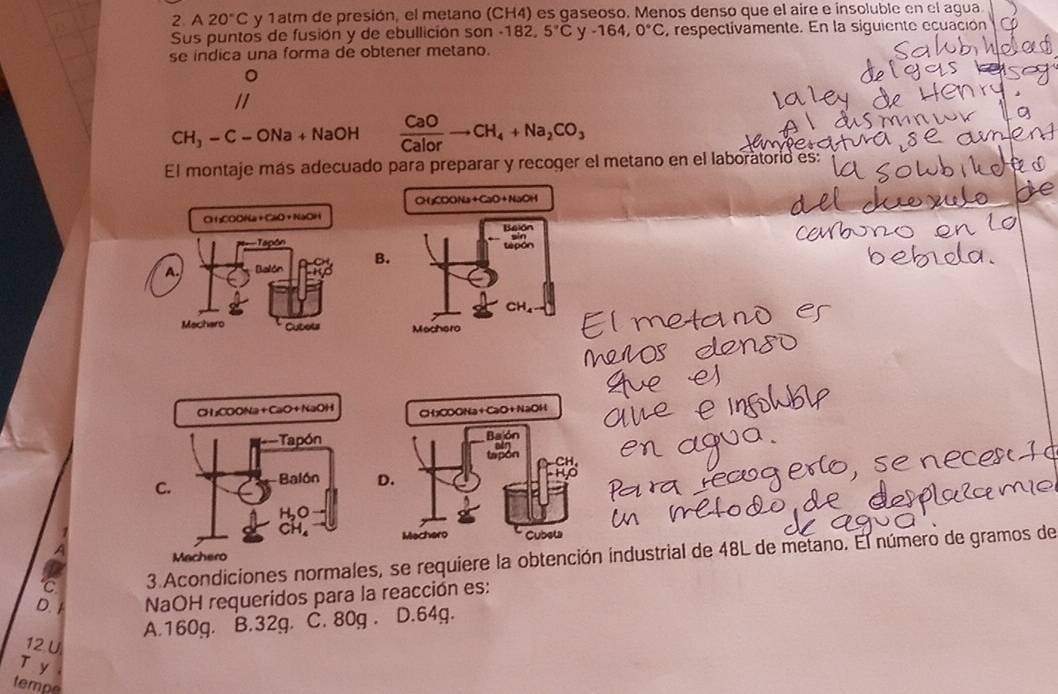 2. A 20°C y 1atm de presión, el metano (CH4) es gaseoso. Menos denso que el aire e insoluble en el agua.
Sus puntos de fusión y de ebullición son -182, 5°C y -164, 0°C, respectivamente. En la siguiente ecuación
se indica una forma de obtener metano.
O
//
CH₃ - C - ONa + NaOH CaO/Calor → CH₄ + Na₂CO₃
la ley de Henry.
Al disminuir la
temperatura, se aument
la solubilidad
carbono en la
bebida.
El montaje más adecuado para preparar y recoger el metano en el laboratorio es:
CH₃COONa + CaO + NaOH
Tapón
CH₄
H₂O
A.
Balón
Mechero
Cubeta
CH₃COONa+CaO+NaOH
Balón
sin
tapón
B.
CH₄
Mechero
El metano es
menos denso
que el
aire e insoluble
en agua.
Para recogerlo, se necesita
un método de desplazamie
de agua.
CH₃COONa+CaO+NaOH
Tapón
C.
Balón
H₂O
CH₄
Mechero
CH₃COONa+CaO+NaOH
Balón
sin
tapón
CH₄
H₂O
D.
Mechero
Cubeta
3.Acondiciones normales, se requiere la obtención industrial de 48L de metano. El número de gramos de
NaOH requeridos para la reacción es:
A.160g. B.32g. C. 80g . D.64g.
A
C.
D.
12.U
T y
tempe